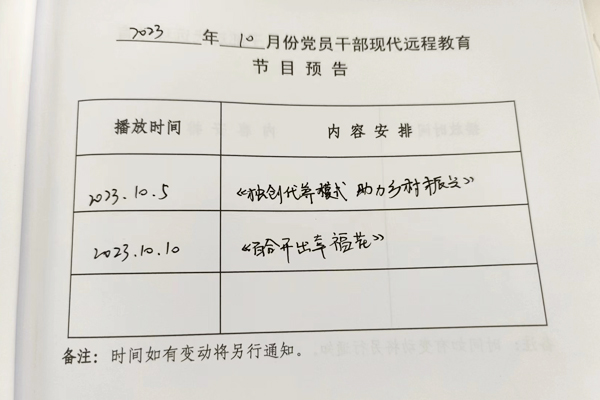 2023年10月份党员干部现代远程教育
节目预告
播放时间 内容安排
2023.10.5 《独创代养模式 助力乡村振兴》
2023.10.10 《百合开出幸福花》
备注：时间如有变动将另行通知。